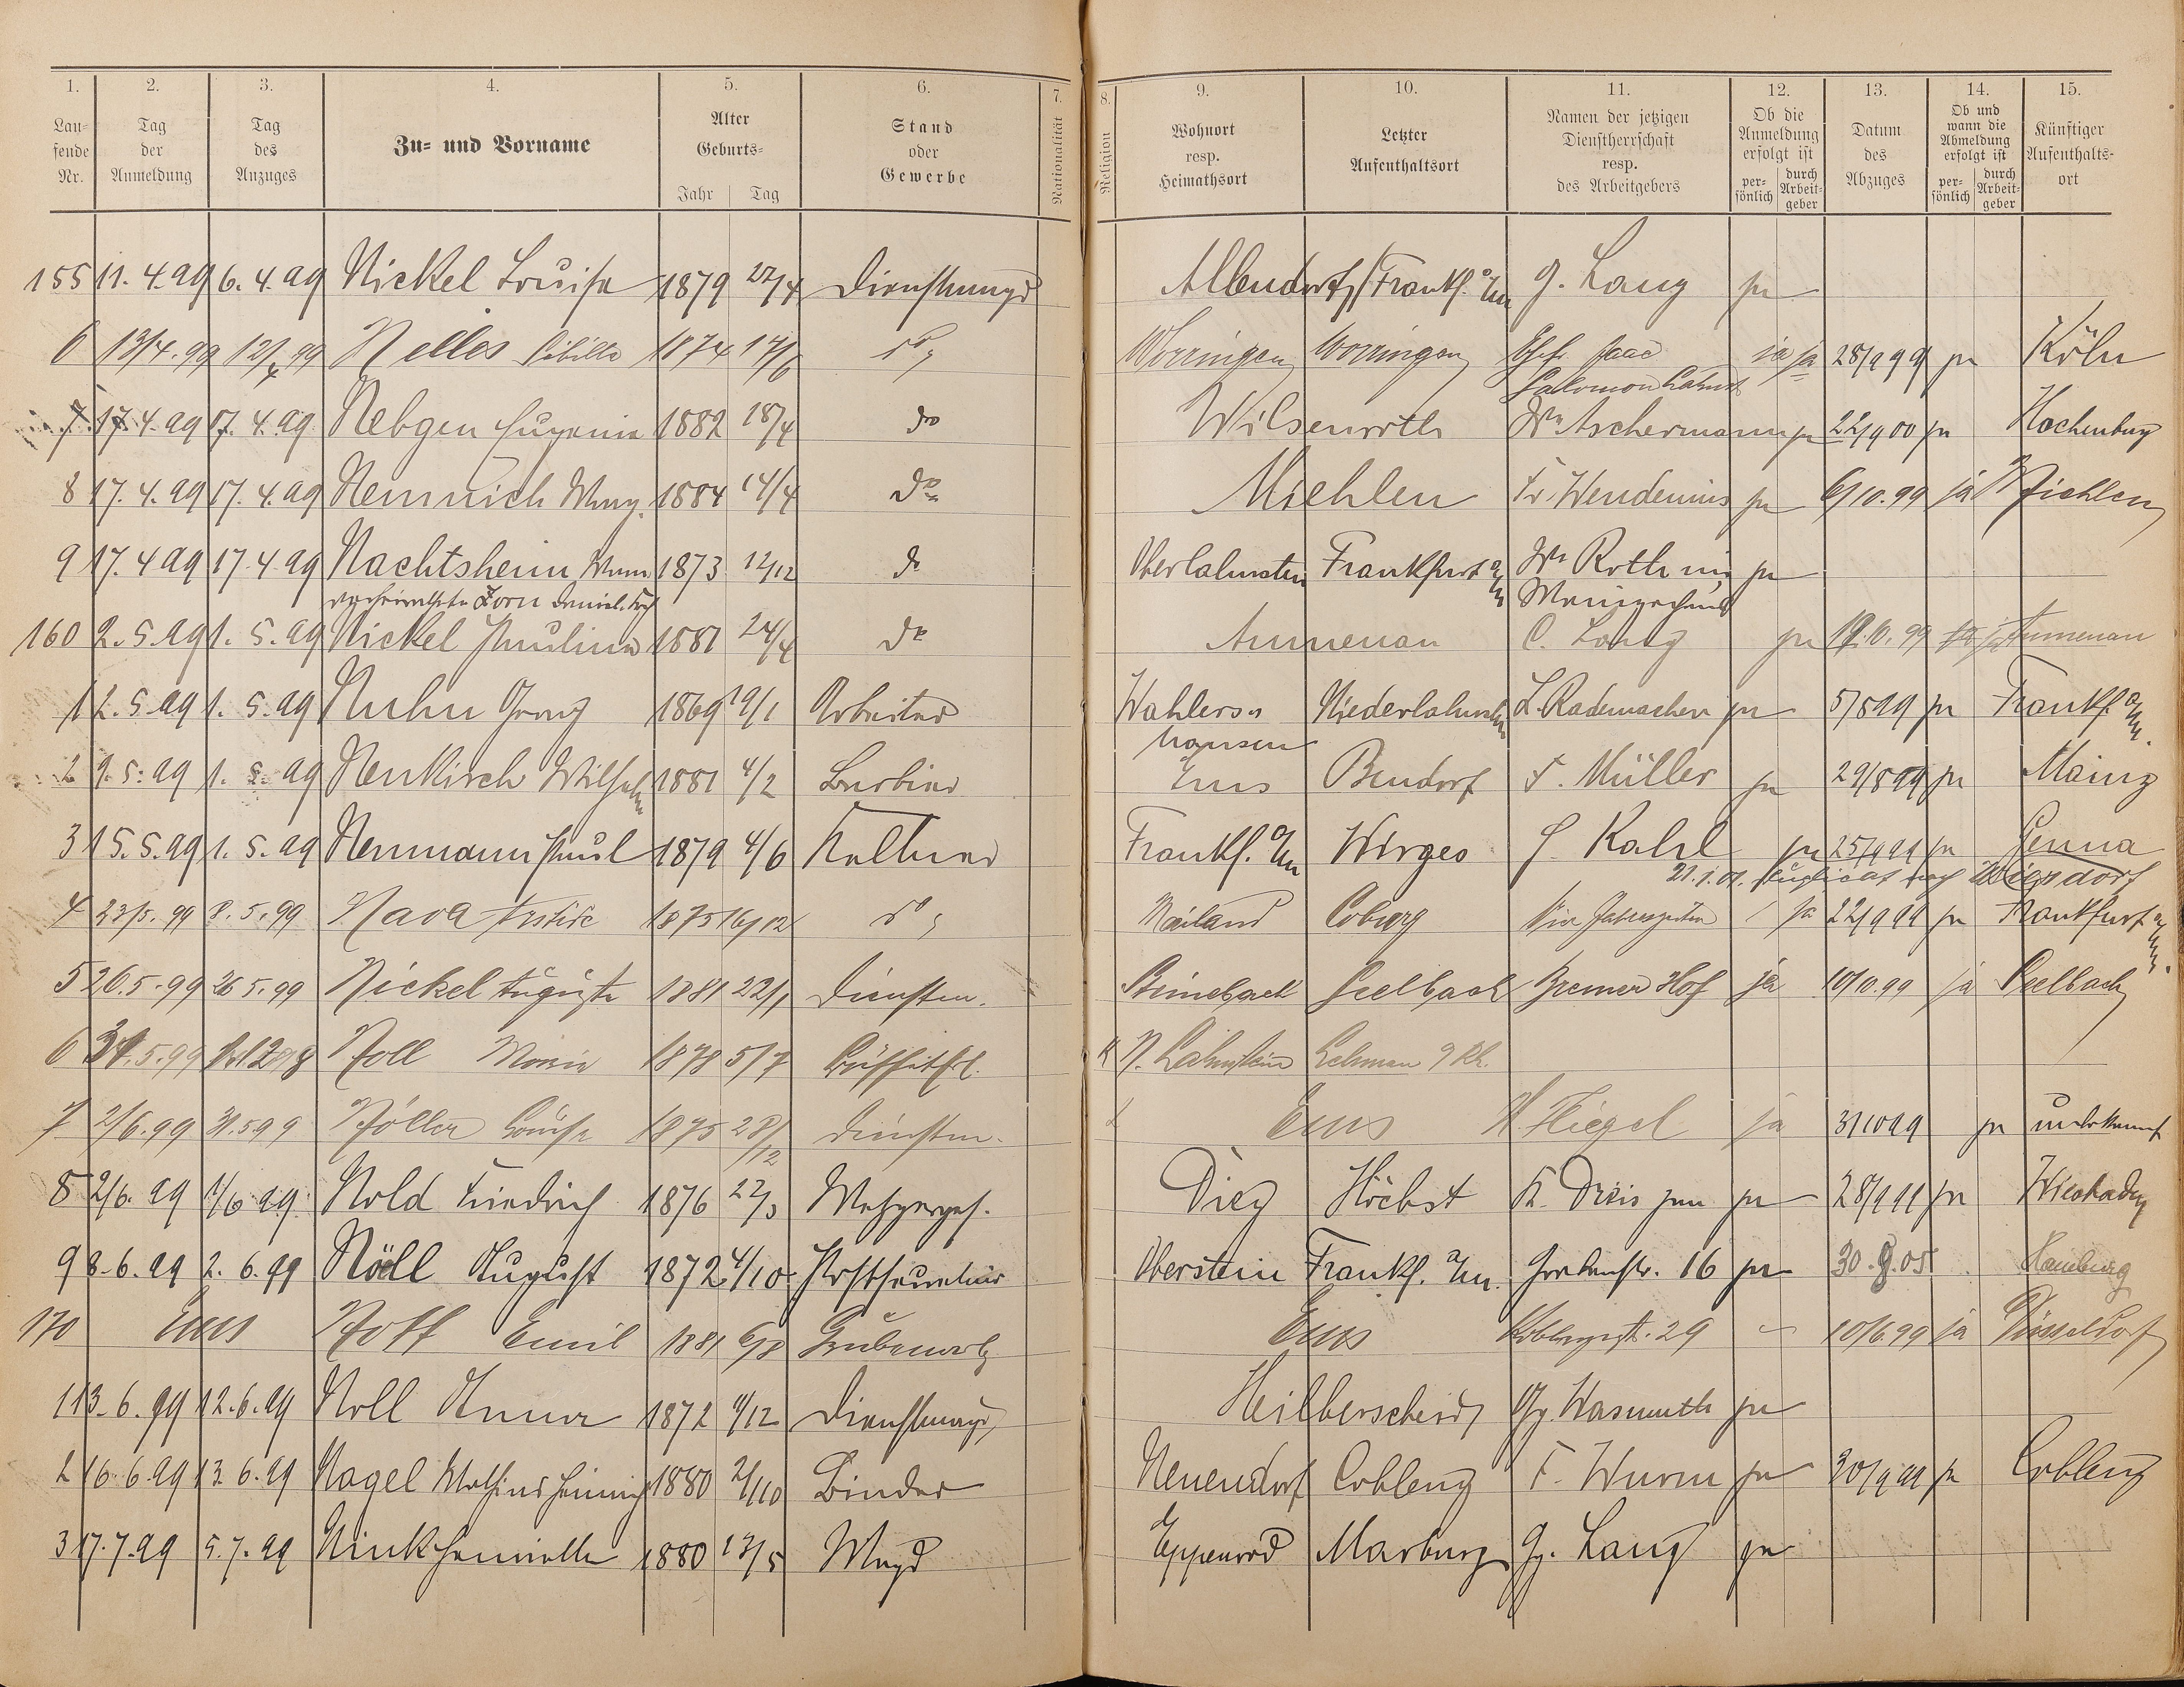 1. 2. 3. 4. 5. 6. 7. 8. 9. 10. 11. 12. 13. 14. 15.
Laufende Nr. | Tag der Anmeldung | Tag des Anzuges | Zu- und Vorname | Alter Geburts- Jahr | Tag | Stand oder Gewerbe | Nationalität | Religion | Wohnort resp. Heimathsort | Letzter Aufenthaltsort | Namen der jetzigen Dienstherrschaft resp. des Arbeitgebers | Ob die Anmeldung erfolgt ist persönlich | durch Arbeitgeber | Datum des Abzuges | Ob und wann die Abmeldung erfolgt ist persönlich | durch Arbeitgeber | Künftiger Aufenthaltsort
155 11. 4. 99 6. 4. 99 Nickel Louise 1879 22/4 Dienstmagd Allendorf Frankf. a/m G. Lang ja
6 13/4. 99 12/4 99 Nelles Sibilla 1874 17/6 do Worringen Worringen Ehefr. Isaac ja ja 28/9 99 ja Köln
Salomon
7 17. 4. 99 17. 4. 99 Nebgen Eugenie 1882 18/4 do Wilsenroth Wwe Aschermann ja 22/9 00 ja Hachenburg
8 17. 4. 99 17. 4. 99 Nemnich 1884 14/4 do Miehlen Fr. Wendenius ja 6/10. 99 ja Miehlen
9 17. 4 99 17. 4. 99 Nachtsheim 1873 12/12 do Oberlahnstein Frankfurt a/m Wwe Roth ja
verheirathete Zorn
160 2. 5. 99 1. 5. 99 Nickel Pauline 1881 24/4 do Aumenau C. Lang ja 19. 10. 99 ja Aumenau
1 2. 5. 99 1. 5. 99 Nuhn Georg 1869 19/1 Arbeiter Wahlers- Niederlahnstein L. Rademacher ja 5/8 99 ja Frankf. a/m.
hausen
2 9. 5. 99 1. 5. 99 Neukirch Wilhelm 1881 4/2 Barbier Ems Bendorf F. Müller ja 29/8 99 ja Mainz
3 15. 5. 99 1. 5. 99 Neumann Paul 1879 4/6 Kellner Frankf. a/m Wirges Kahl ja 25/9 99 ja Genua
21. 1. 01. nach
4 23/5. 99 8. 5. 99 Nava 1875 16/12 do Mailand Coburg Vier Jahreszeiten ja 22/9 99 ja Frankfurt a/m.
5 26. 5. 99 26 5. 99 Nickel Auguste 1881 22/1 Dienstm. Seelbach Bremer Hof ja 10/10. 99 ja Seelbach
6 31. 5. 99 Noll Maria 1878 5/7 Büffetfrl. K N. Lahnstein
7 2/6. 99 31. 5 99 Nöller Louise 1875 28/12 Dienstm. Ems Fliegel ja 31 10 99 ja unbekannt
8 2/6. 99 1/6 99. Nold Friedrich 1876 22/3 Metzgerges. Diez Höchst ja 28/9 99 ja Wiesbaden
9 8. 6. 99 2. 6. 99 Nöll August 1872 4/10 Postsecretär Oberstein Frankf. a/m. Grabenstr. 16 ja 30. 9. 05 Hamburg
170 Ems Noff Emil 1881 6/8 Grubenarb. Ems Koblenzerstr. 29 – 10/6. 99 ja Düsseldorf
1 13. 6. 99 12. 6. 99 Noll Anna 1872 4/12 Dienstmagd Heilberscheid Gg. Wasmuth ja
2 16. 6. 99 13. 6. 99 Nagel Mathias 1880 2/10 Binder Neuendorf Coblenz F. Wurm ja 30/9 99 ja Coblenz
3 17. 7. 99 5. 7. 99 Nink Henriette 1880 13/5 Magd Eppenrod Marburg Gg. Lang ja